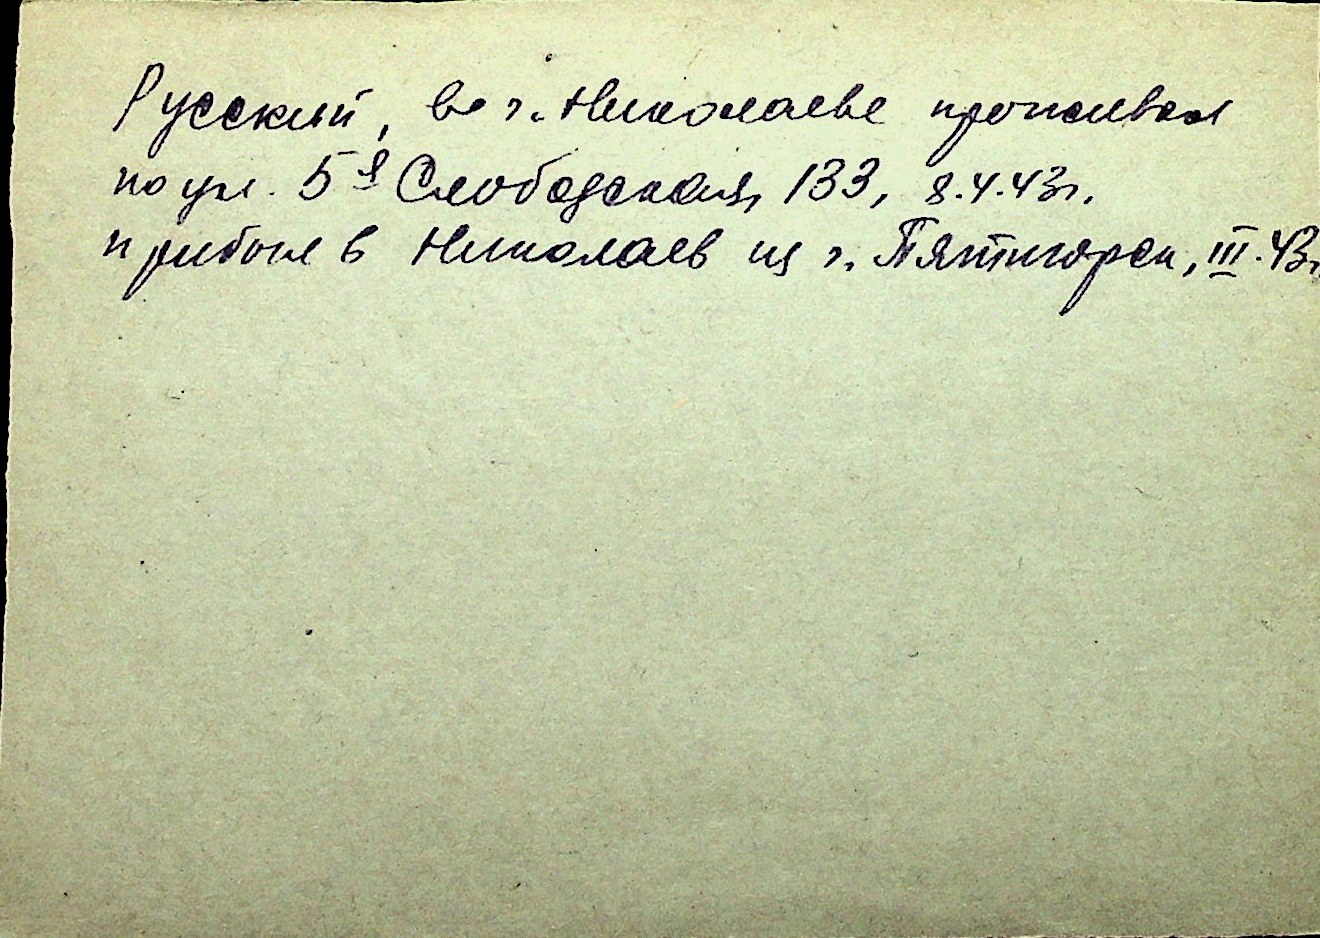 Русский, в г. Николаеве проживал
по ул. 5я Слободская, 133, 8.4.43г.
прибыл в Николаев из г. Пятигорск, III.43г.